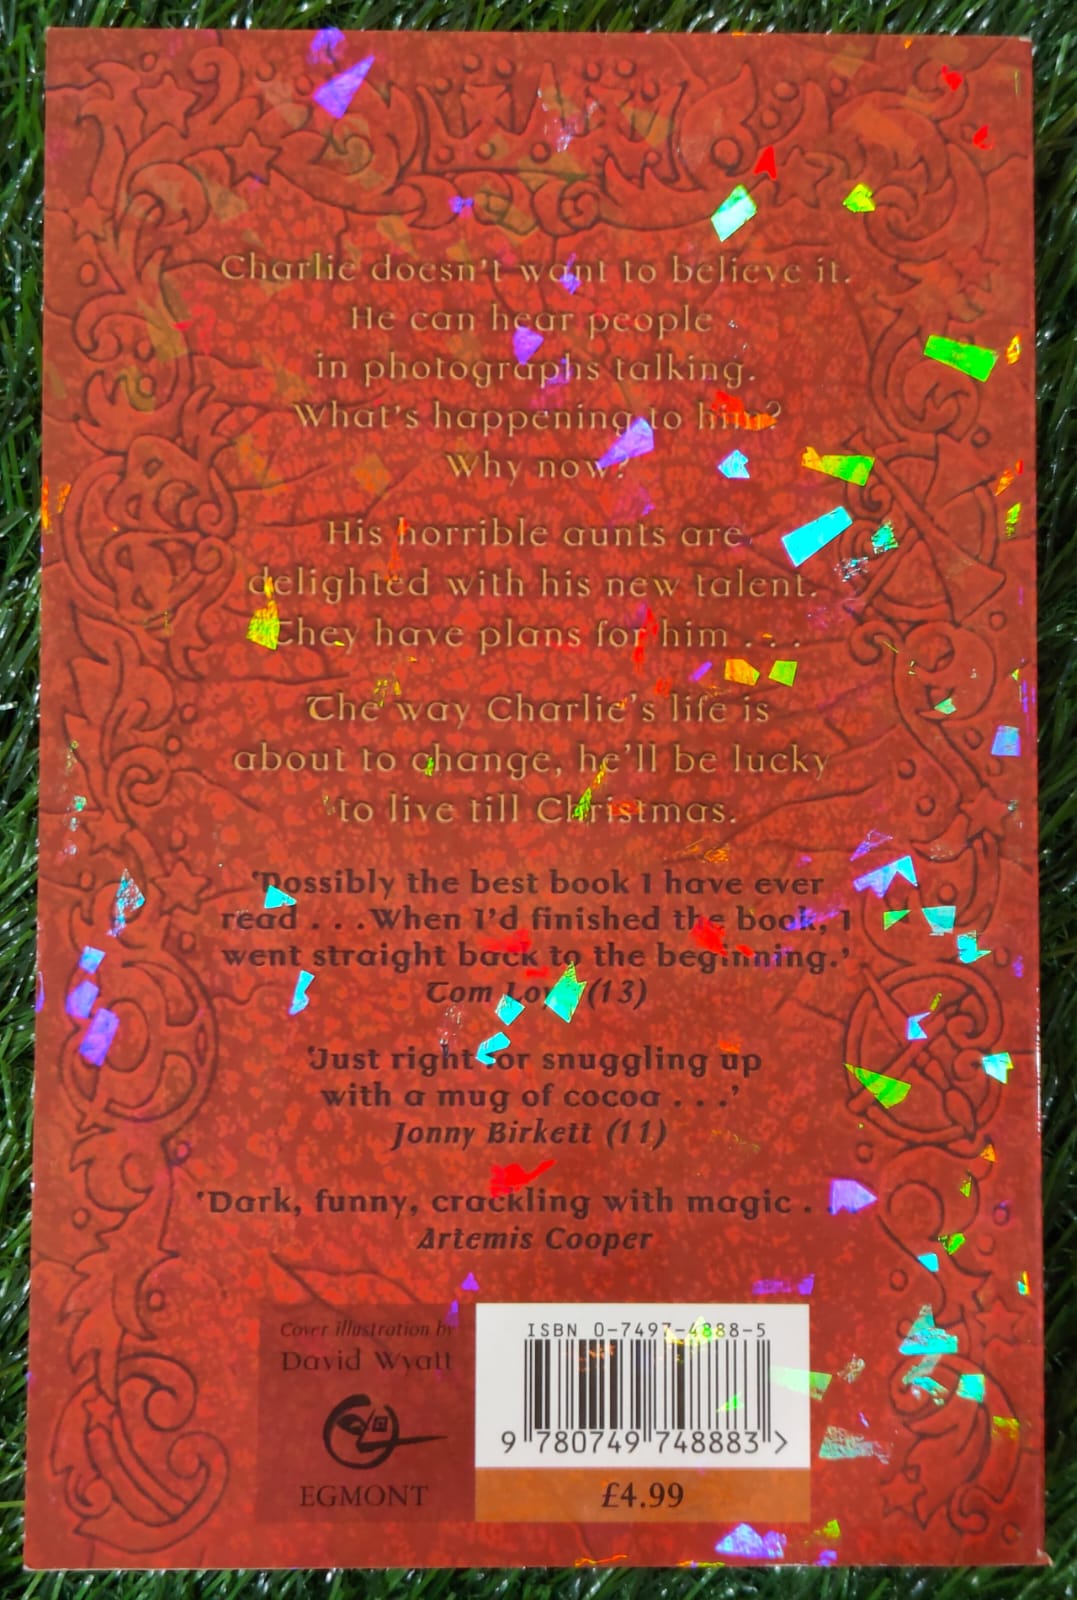 Charlie doesn't want to believe it.
He can hear people
in photographs talking.
What's happening to him?
Why now?
His horrible aunts are
delighted with his new talent.
They have plans for him . . .
The way Charlie's life is
about to change, he'll be lucky
to live till Christmas.
'Possibly the best book I have ever
read . . .When I'd finished the book, I
went straight back to the beginning.'
Tom (13)
'Just right for snuggling up
with a mug of cocoa . . .'
Jonny Birkett (11)
'Dark, funny, crackling with magic . .
Artemis Cooper
Cover illustration by
David Wyatt
EGMONT
ISBN 0-7497-4888-5
9 780749 748883 >
£4.99